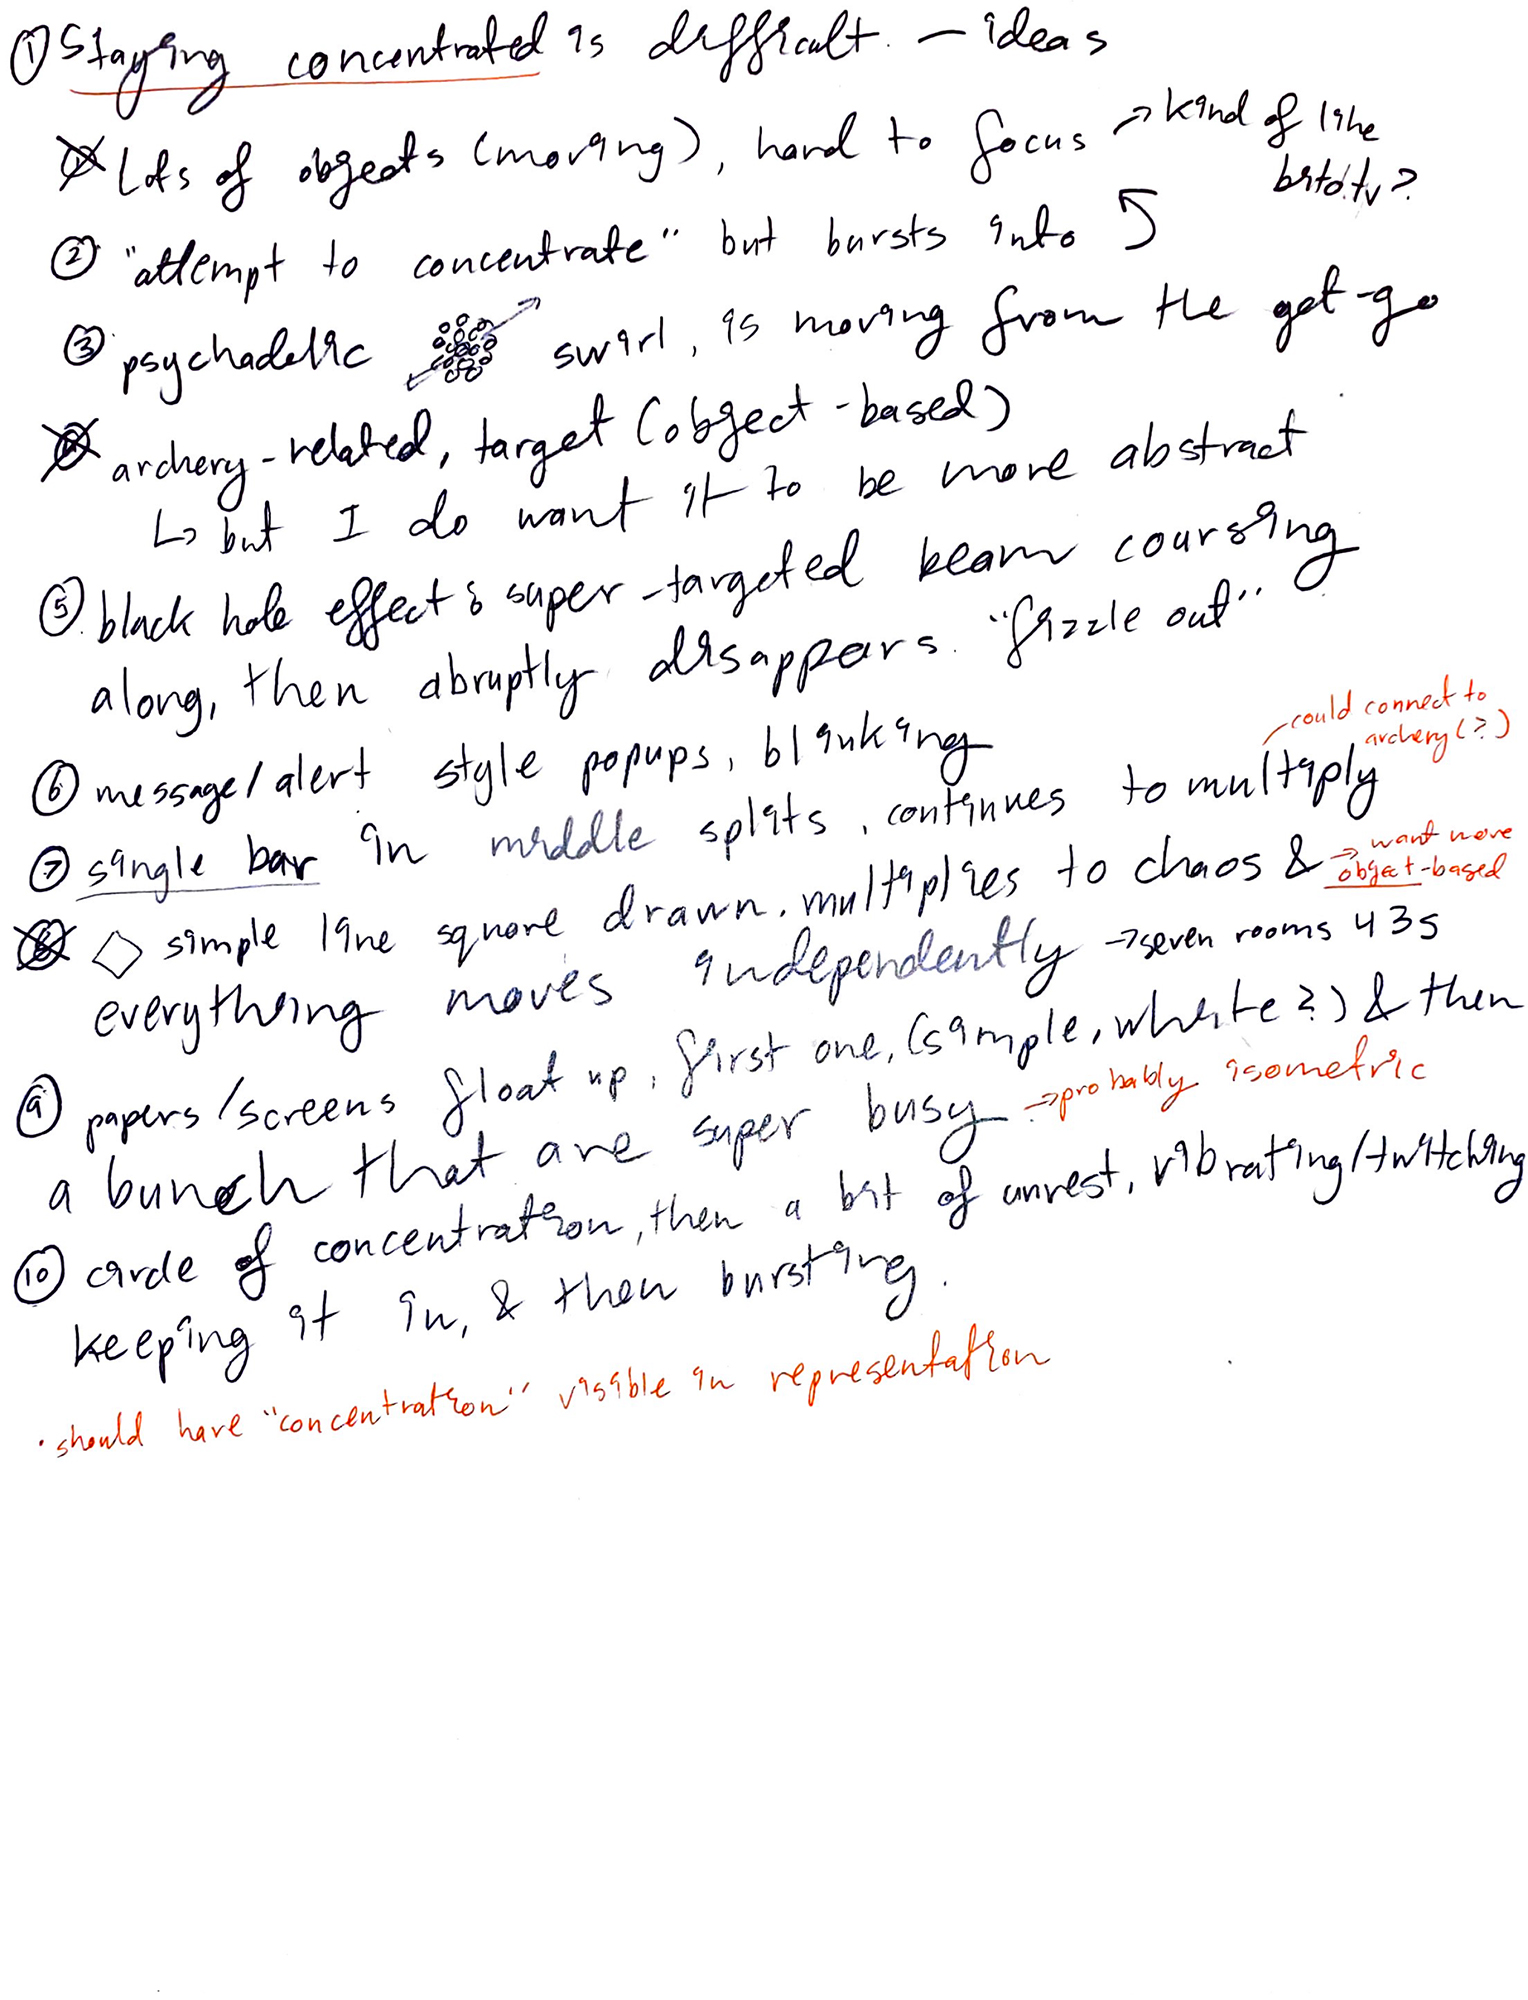 ① Staying concentrated is difficult. — ideas
① Lots of objects (moving), hard to focus → kind of like
bito.tv?
② "attempt to concentrate" but bursts into
③ psychadelic swirl, is moving from the get-go
④ archery-related, target (object-based)
↳ but I do want it to be more abstract
⑤ black hole effect & super-targeted beam coursing
along, then abruptly disappears. "fizzle out"
could connect to
archery (?)
⑥ message/alert style popups, blinking
⑦ single bar in middle splits, continues to multiply
⑧ simple line square drawn. multiplies to chaos &
→ want more
object-based
everything moves independently → seven rooms 43s
⑨ papers/screens float up, first one, (simple, white?) & then
a bunch that are super busy → probably isometric
⑩ circle of concentration, then a bit of unrest, vibrating/twitching
keeping it in, & then bursting.
· should have "concentration" visible in representation